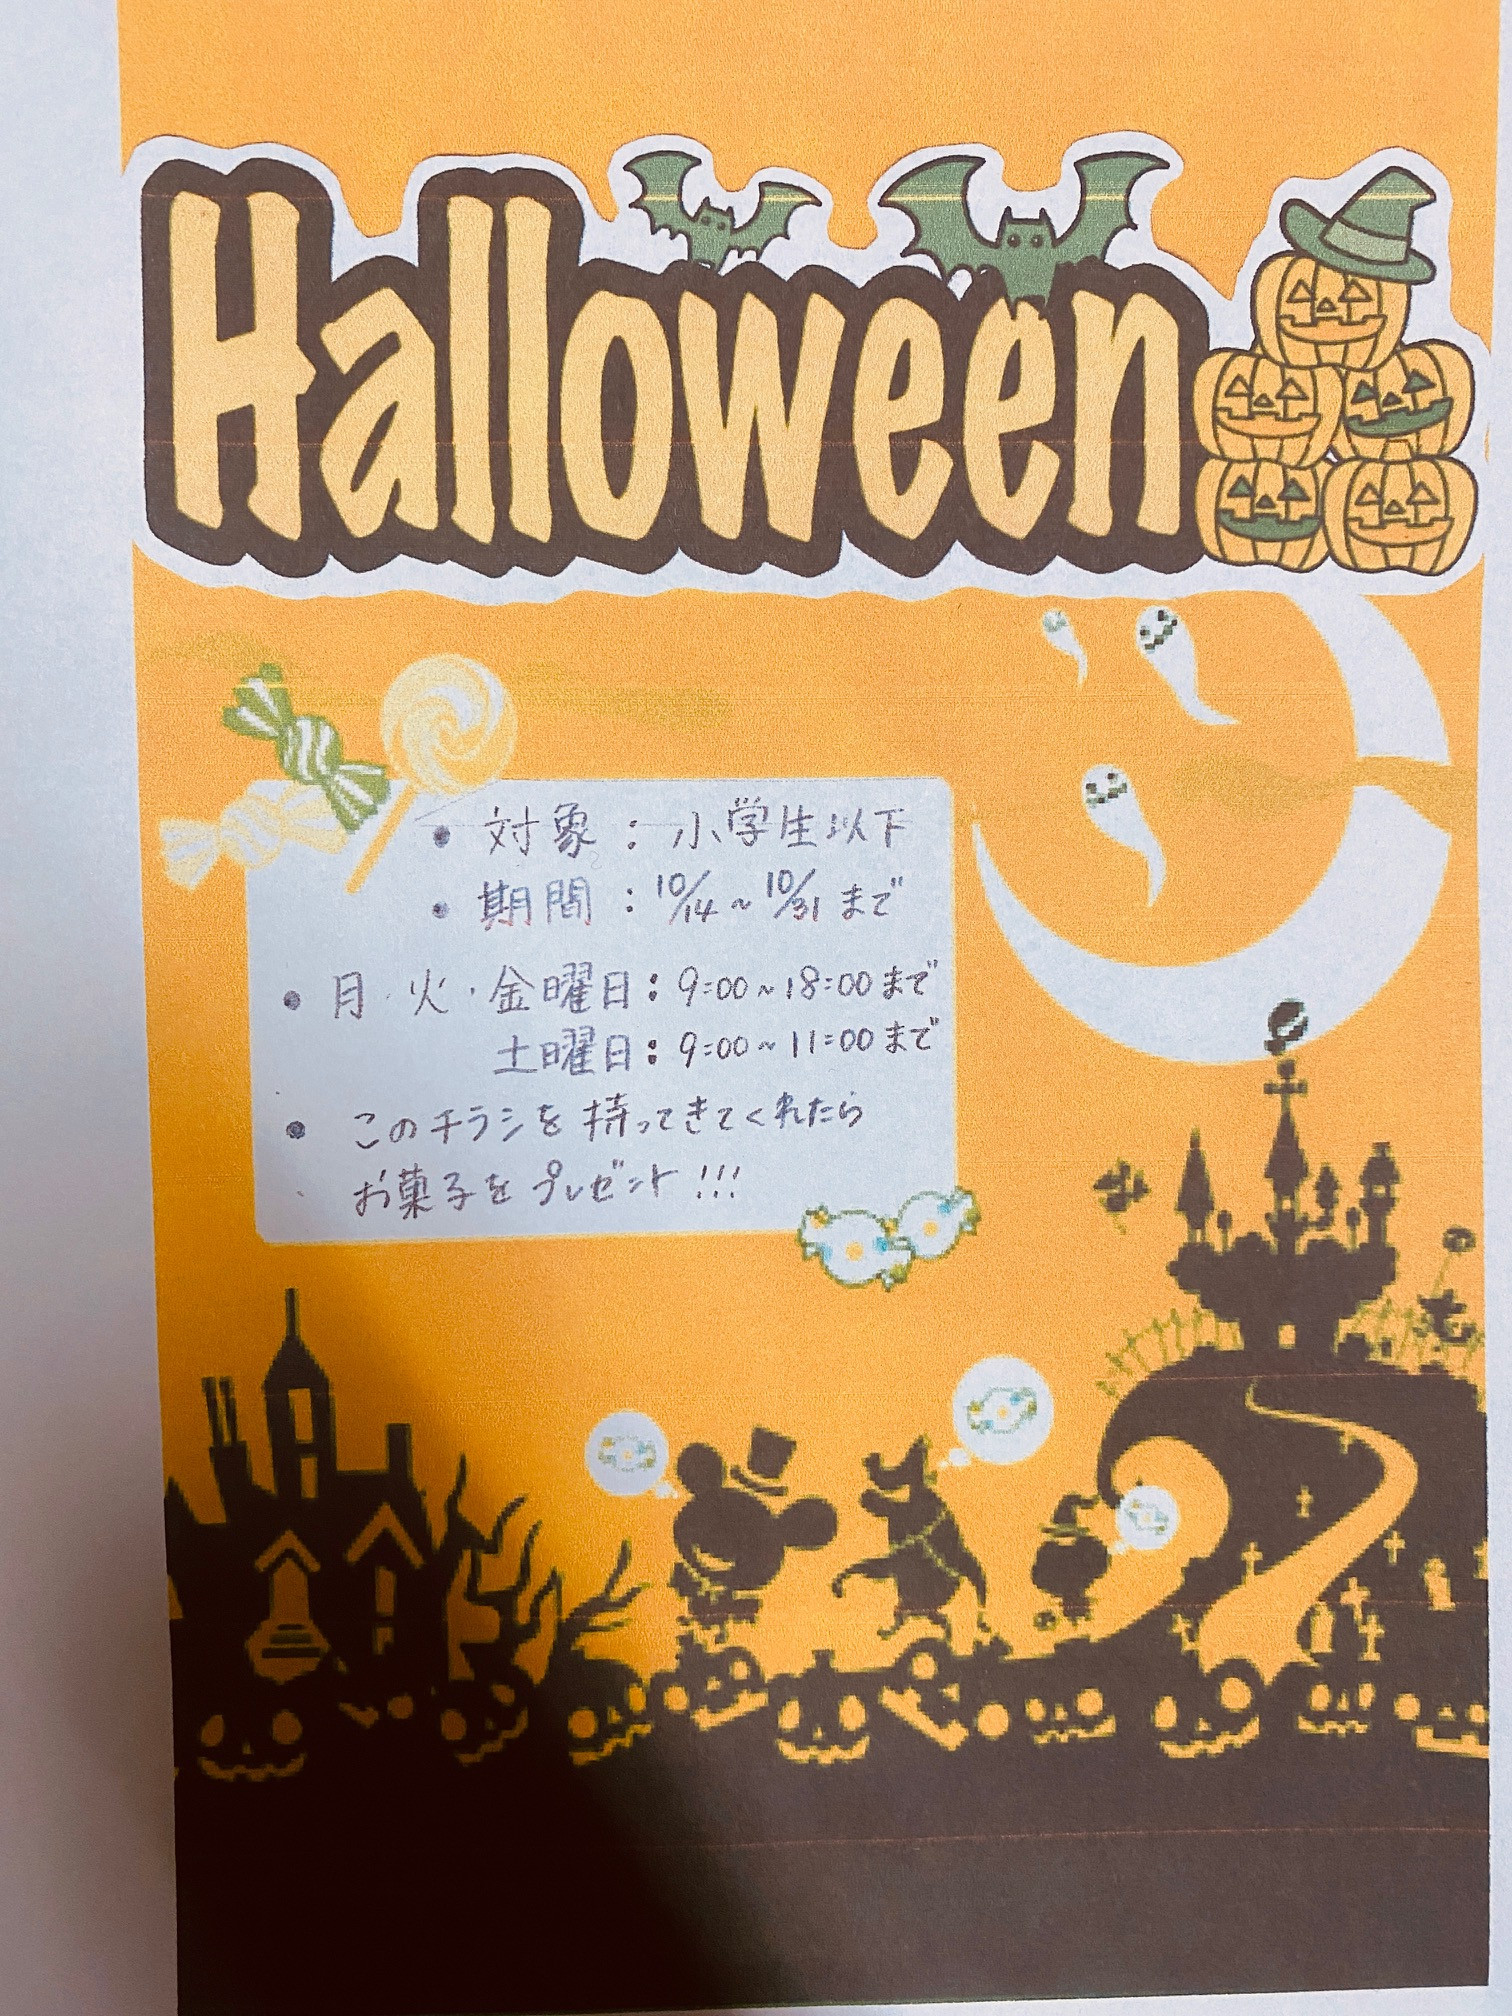 Halloween
・対象：小学生以下
・期間：10/14～10/31まで
・月・火・金曜日：9:00～18:00まで
土曜日：9:00～11:00まで
・このチラシを持ってきてくれたら
お菓子をプレゼント!!!